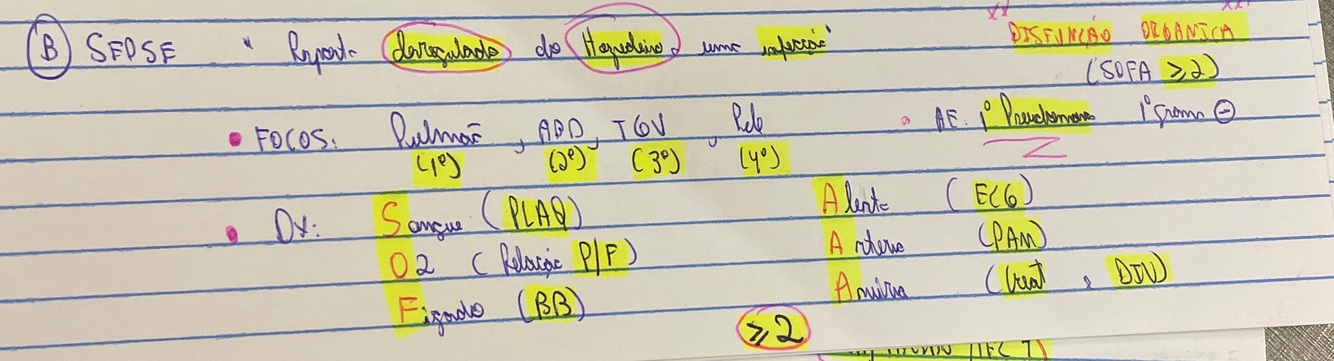 B SEPSE " Resposta desregulada do Hospedeiro a uma infecção" DISFUNÇÃO ORGÂNICA
(SOFA ≥2)
• FOCOS: Pulmão, ABD, TGU, Pele • AE: 1º Pseudomonas 1º gram ⊖
(1º) (2º) (3º) (4º)
• DX: Sangue (PLAQ) Alerta (ECG)
O2 (Relação P/F) Artéria (PAM)
Fígado (BB) Anúria (Creat e DIU)
≥2